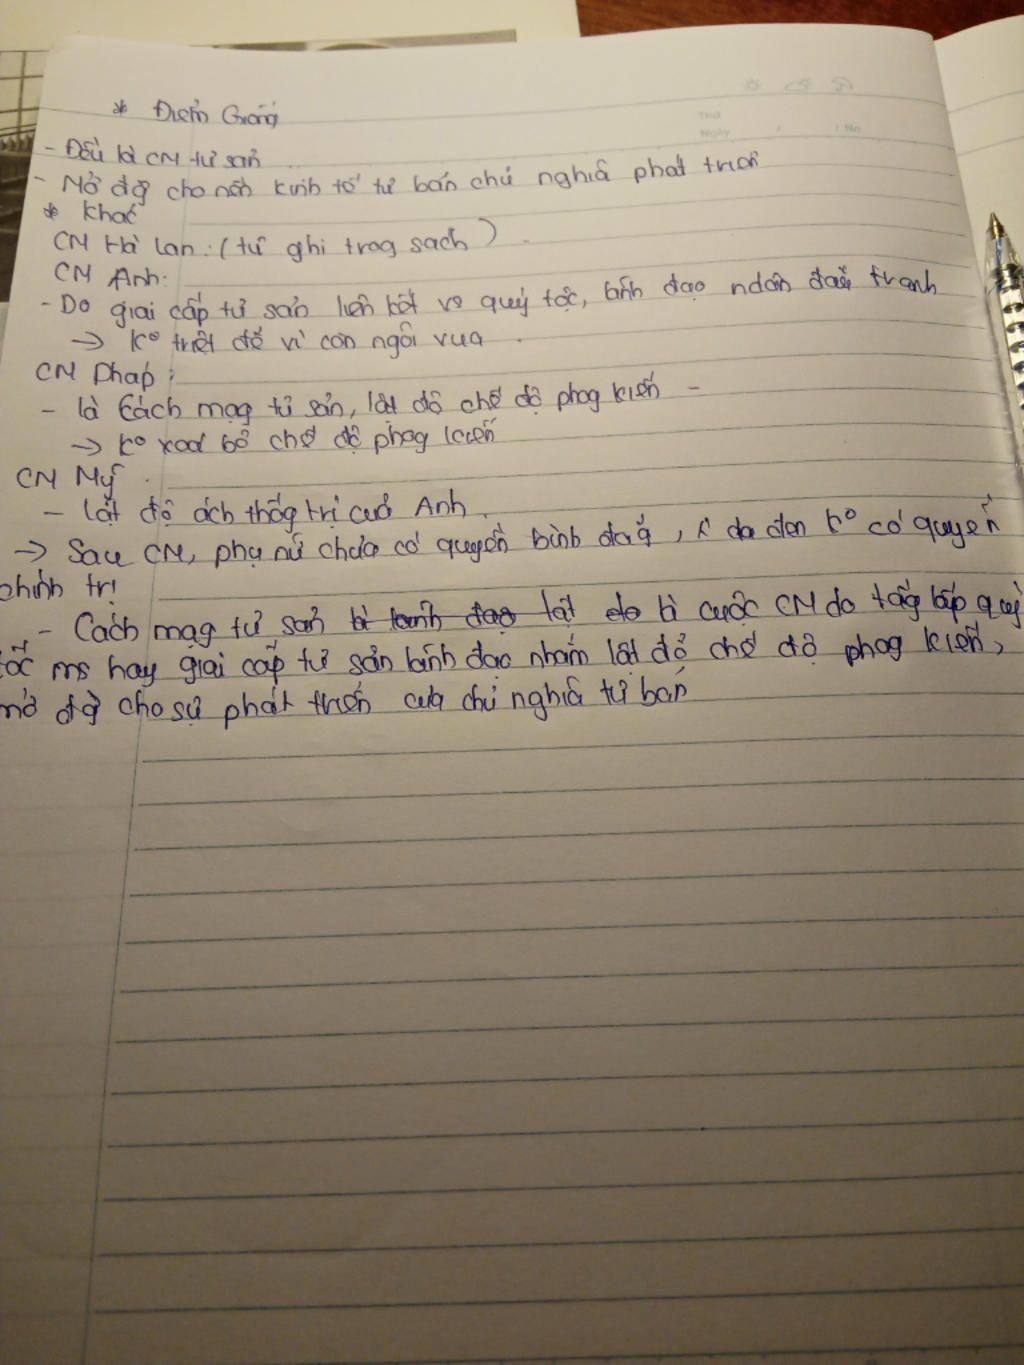 * Điểm Giống
Thứ
Ngày / / No
- Đều là CM tư sản
- Mở đg cho nền kinh tế tư bản chủ nghĩa phát triển
* Khác
CM Hà Lan: (tự ghi trog sách)
CM Anh:
- Do giai cấp tư sản liên kết vs quý tộc, lãnh đạo ndân đấu tranh
→ kº triệt để vì còn ngôi vua.
CM Pháp:
- là Cách mạg tư sản, lật đổ chế độ phog kiến -
→ kº xoá bỏ chế độ phog kiến
CM Mỹ
- Lật đổ ách thốg trị của Anh.
→ Sau CM, phụ nữ chưa có quyền bình đẳg, da đen kº có quyền
chính trị
- Cách mạg tư sản là lãnh đạo lật đổ là cuộc CM do tầg lớp quý
tốc ms hay giai cấp tư sản lãnh đạo nhằm lật đổ chế độ phog kiến,
mở đg cho sự phát triển của chủ nghĩa tư bản